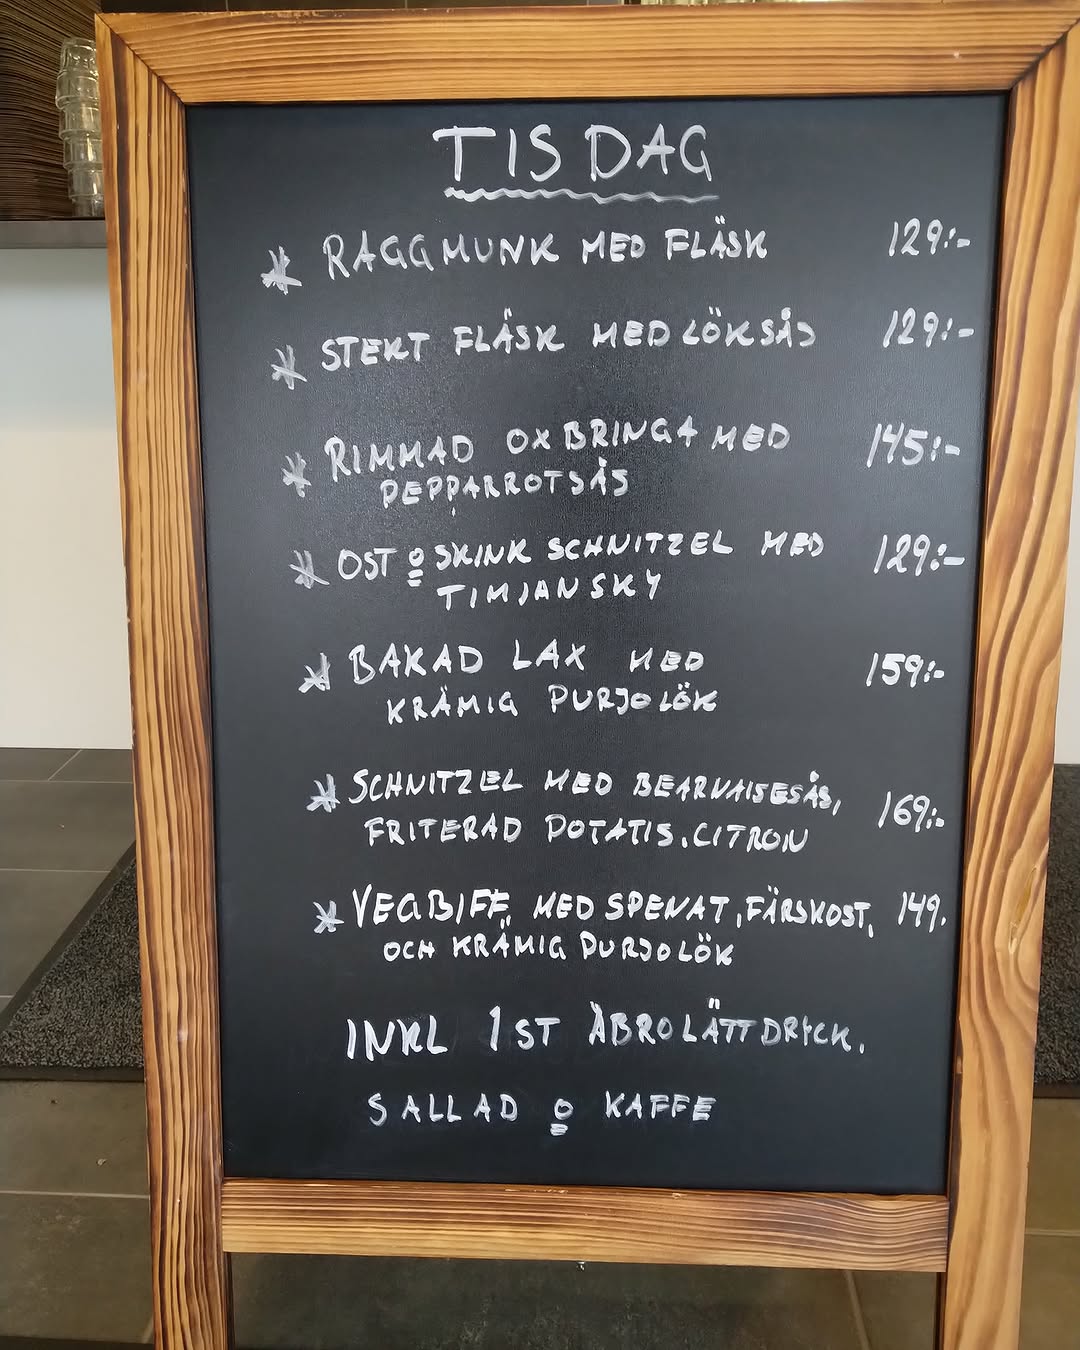 TISDAG
* RAGGMUNK MED FLÄSK 129:-
* STEKT FLÄSK MED LÖKSÅS 129:-
* RIMMAD OXBRINGA MED 145:-
PEPPARROTSÅS
* OST o SKINK SCHNITZEL MED 129:-
TIMJANSKY
* BAKAD LAX MED 159:-
KRÄMIG PURJOLÖK
* SCHNITZEL MED BEARNAISESÅS, 169:-
FRITERAD POTATIS, CITRON
* VEGBIFF, MED SPENAT, FÄRSKOST, 149.
OCH KRÄMIG PURJOLÖK
INKL 1ST ÅBRO LÄTTDRYCK.
SALLAD o KAFFE